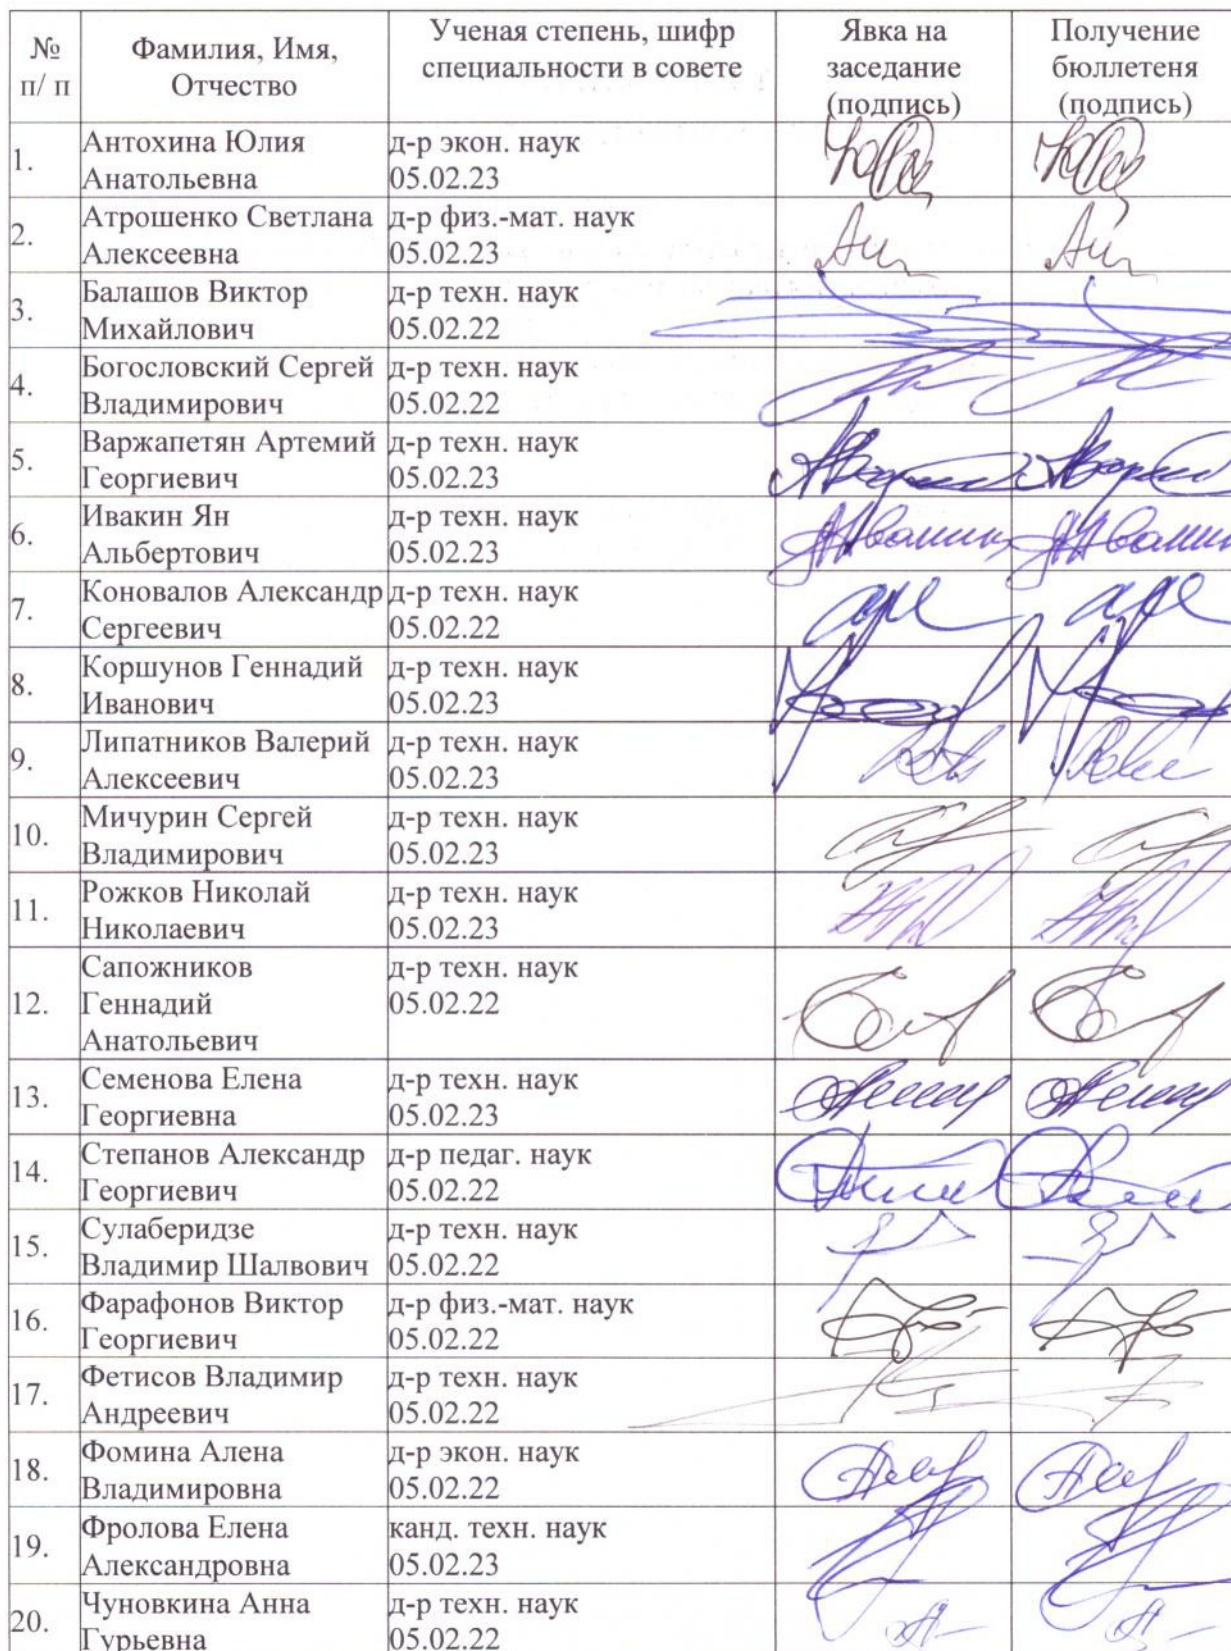 № п/ п
Фамилия, Имя, Отчество
Ученая степень, шифр специальности в совете
Явка на заседание (подпись)
Получение бюллетеня (подпись)
1.
Антохина Юлия
Анатольевна
д-р экон. наук
05.02.23
2.
Атрошенко Светлана
Алексеевна
д-р физ.-мат. наук
05.02.23
3.
Балашов Виктор
Михайлович
д-р техн. наук
05.02.22
4.
Богословский Сергей
Владимирович
д-р техн. наук
05.02.22
5.
Варжапетян Артемий
Георгиевич
д-р техн. наук
05.02.23
6.
Ивакин Ян
Альбертович
д-р техн. наук
05.02.23
7.
Коновалов Александр
Сергеевич
д-р техн. наук
05.02.22
8.
Коршунов Геннадий
Иванович
д-р техн. наук
05.02.23
9.
Липатников Валерий
Алексеевич
д-р техн. наук
05.02.23
10.
Мичурин Сергей
Владимирович
д-р техн. наук
05.02.23
11.
Рожков Николай
Николаевич
д-р техн. наук
05.02.23
12.
Сапожников
Геннадий
Анатольевич
д-р техн. наук
05.02.22
13.
Семенова Елена
Георгиевна
д-р техн. наук
05.02.23
14.
Степанов Александр
Георгиевич
д-р педаг. наук
05.02.22
15.
Сулаберидзе
Владимир Шалвович
д-р техн. наук
05.02.22
16.
Фарафонов Виктор
Георгиевич
д-р физ.-мат. наук
05.02.22
17.
Фетисов Владимир
Андреевич
д-р техн. наук
05.02.22
18.
Фомина Алена
Владимировна
д-р экон. наук
05.02.22
19.
Фролова Елена
Александровна
канд. техн. наук
05.02.23
20.
Чуновкина Анна
Гурьевна
д-р техн. наук
05.02.22